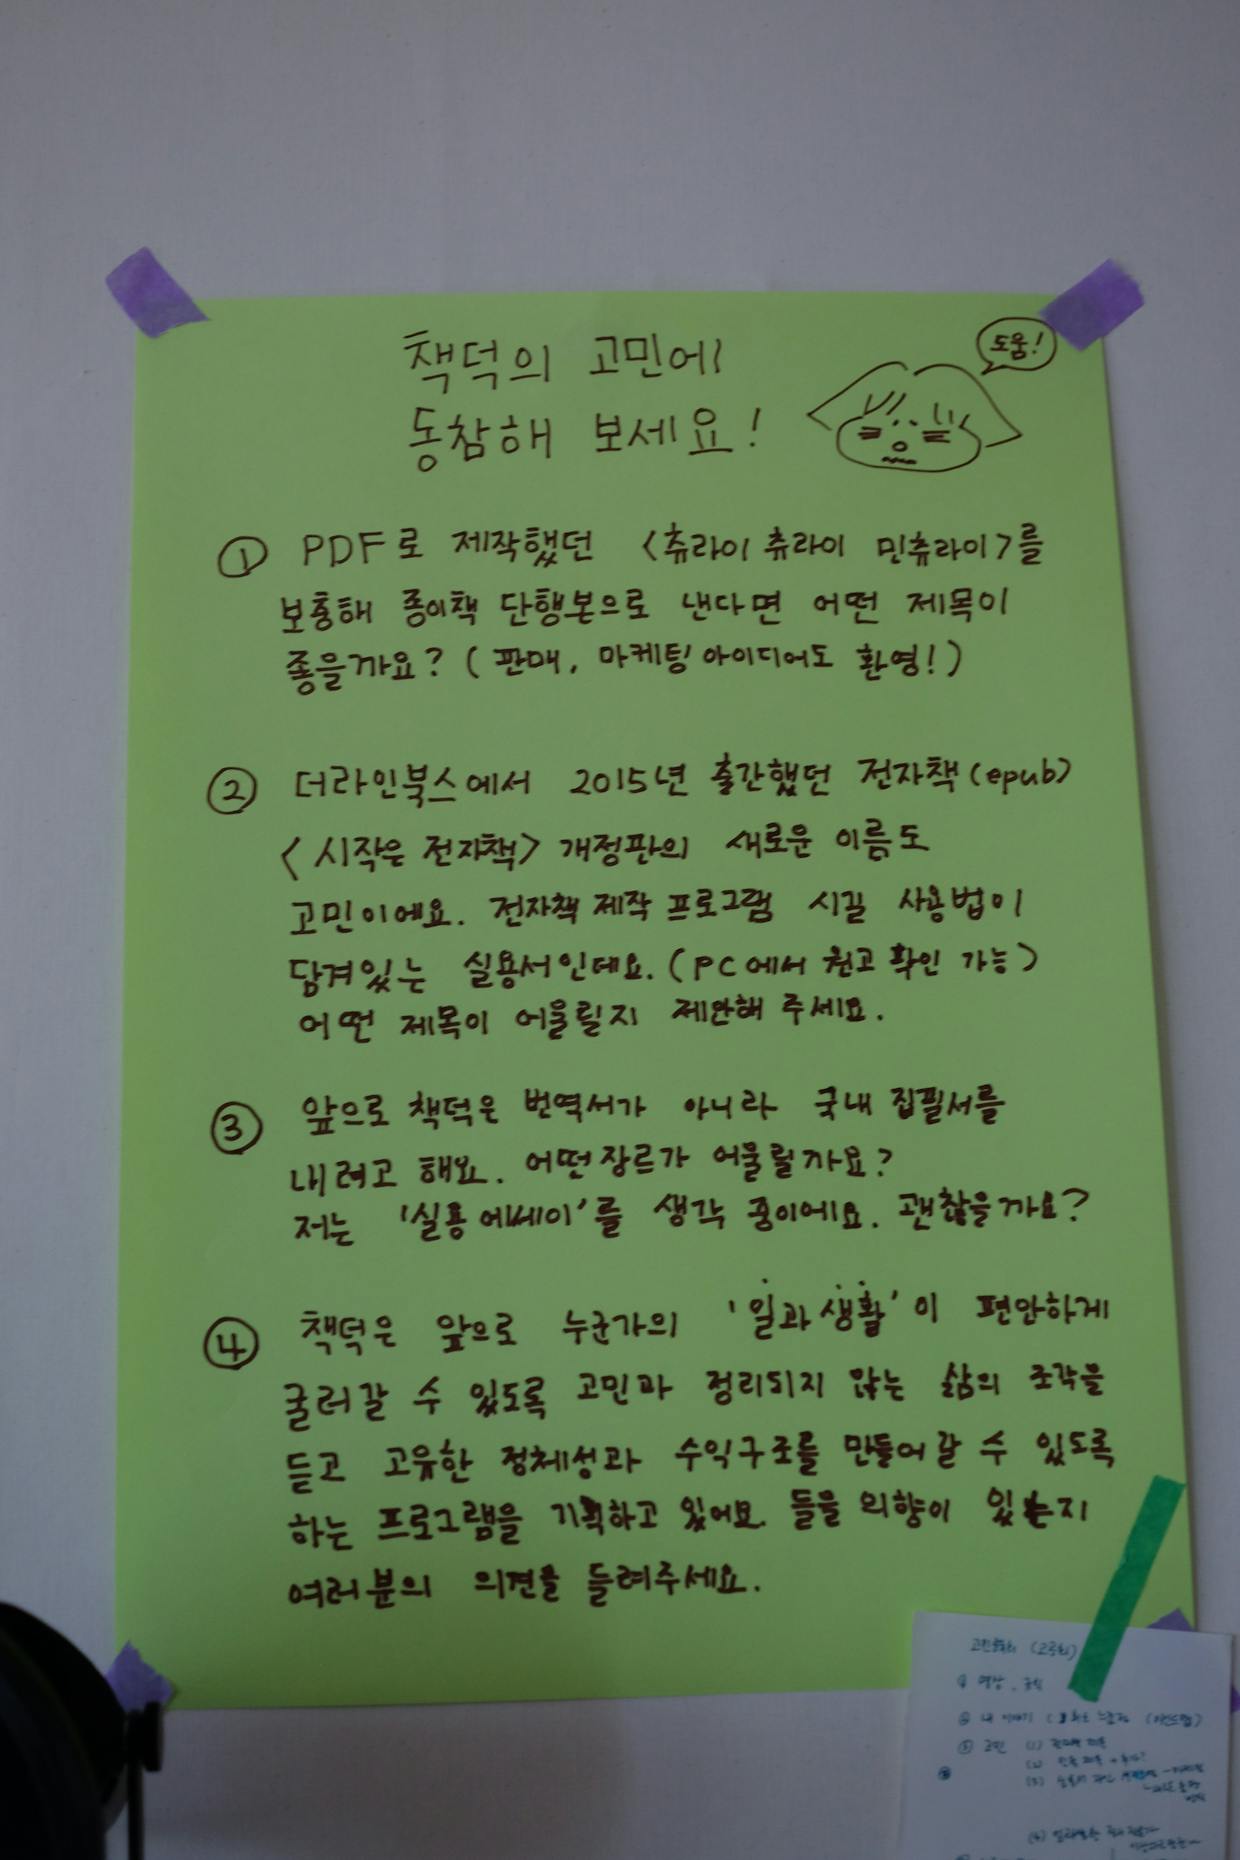 책덕의 고민에
동참해 보세요!
도움!
① PDF로 제작했던 <츄라이 츄라이 민츄라이>를
보충해 종이책 단행본으로 낸다면 어떤 제목이
좋을까요? (판매, 마케팅 아이디어도 환영!)
② 더라인북스에서 2015년 출간했던 전자책(epub)
<시작은 전자책> 개정판의 새로운 이름도
고민이에요. 전자책 제작 프로그램 시길 사용법이
담겨있는 실용서인데요. (PC에서 원고 확인 가능)
어떤 제목이 어울릴지 제안해 주세요.
③ 앞으로 책덕은 번역서가 아니라 국내 집필서를
내려고 해요. 어떤 장르가 어울릴까요?
저는 '실용 에세이'를 생각 중이에요. 괜찮을까요?
④ 책덕은 앞으로 누군가의 '일과 생활'이 편안하게
굴러갈 수 있도록 고민과 정리되지 않는 삶의 조각을
듣고 고유한 정체성과 수익구조를 만들어 갈 수 있도록
하는 프로그램을 기획하고 있어요. 들을 의향이 있는지
여러분의 의견을 들려주세요.
② 내 이야기
③ 고민 (1)
(2)
(3)
(4)